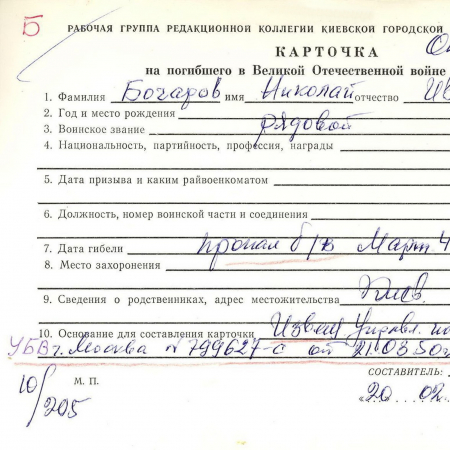 Б
РАБОЧАЯ ГРУППА РЕДАКЦИОННОЙ КОЛЛЕГИИ КИЕВСКОЙ ГОРОДСКОЙ
КАРТОЧКА
на погибшего в Великой Отечественной войне
1. Фамилия Бочаров имя Николай отчество Ив
2. Год и место рождения
3. Воинское звание рядовой
4. Национальность, партийность, профессия, награды
5. Дата призыва и каким райвоенкоматом
6. Должность, номер воинской части и соединения
7. Дата гибели пропал б/в Март 4
8. Место захоронения
9. Сведения о родственниках, адрес местожительства Киев.
10. Основание для составления карточки Извещ Управл. по
УБВ г. Москва № 799627-с от 21.03.50г
10/205
М. П.
СОСТАВИТЕЛЬ:
"20" 02